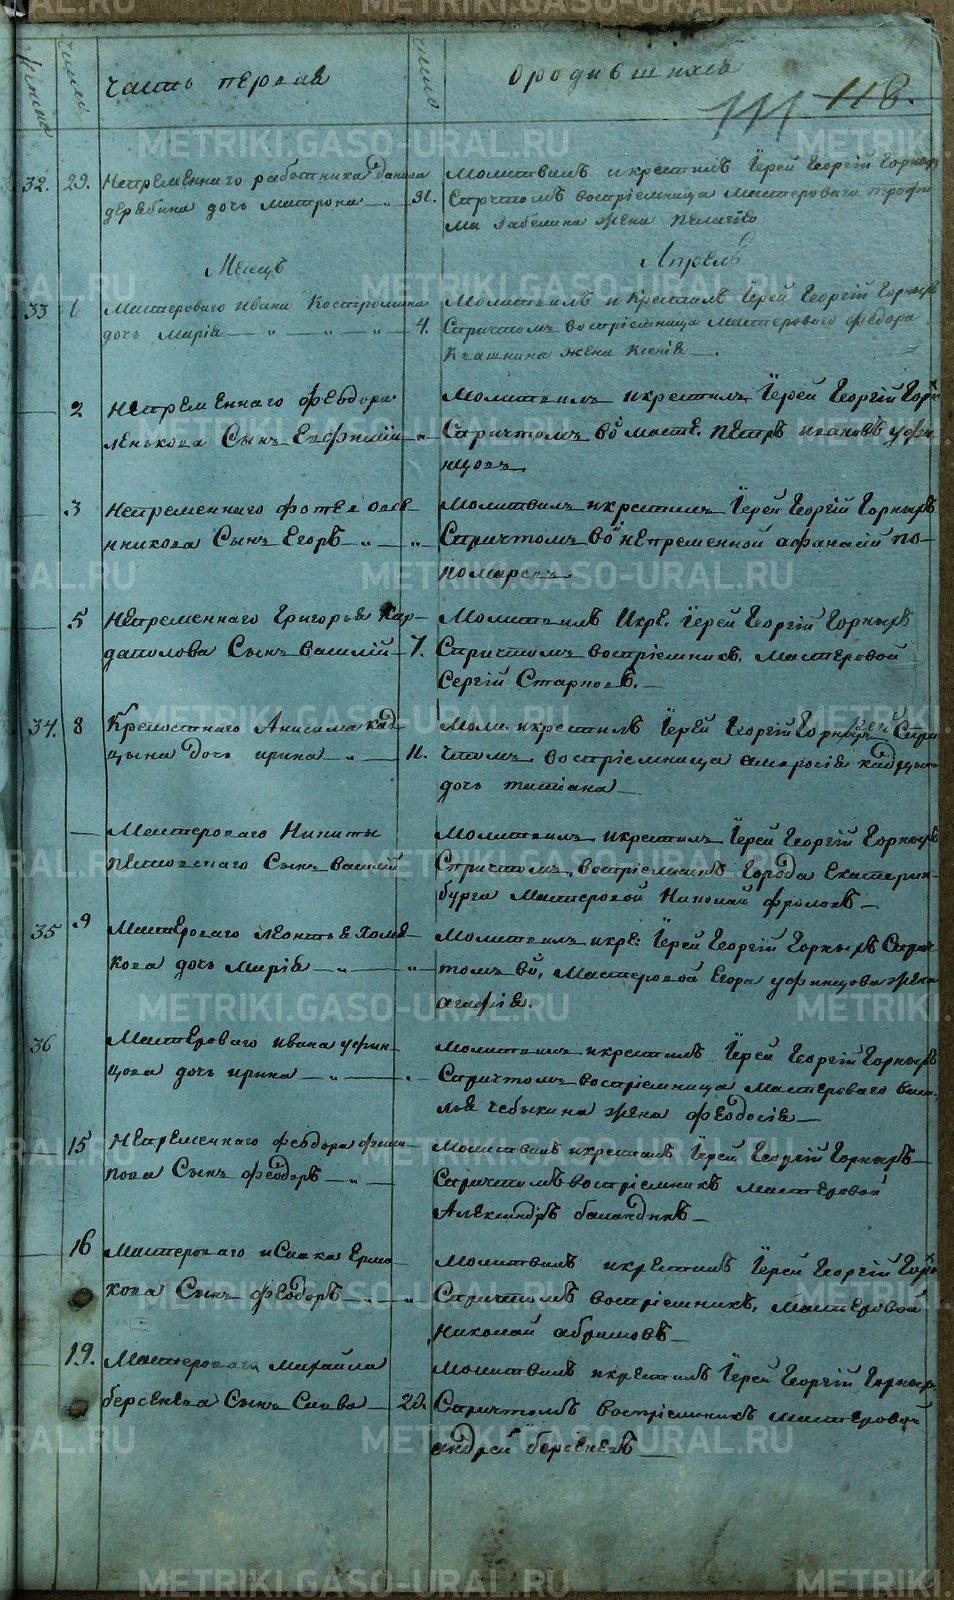 часть первая
о родившихся
111 118.
32. 29. Непременнаго работника Данила
дерябина дочь Матрона 31.
Молитвилъ и крестилъ Iерей Георгiй Горныхъ
Спричтомъ воспрiемница Мастероваго Трофи
ма Забелина жена Пелагiя
Месяцъ
Апрель
33 1 Мастероваго Ивана Костромина
дочь Марiя 4.
Молитвилъ и крестилъ Iерей Георгiй Горныхъ
Спричтомъ воспрiемница Мастероваго Федора
жена Ксенiя
2 Непременнаго Феодора
ленькова Сынъ Евфимiй
Молитвилъ и крестилъ Iерей Георгiй
Спричтомъ во масте. Петръ ивановъ уфи
нцовъ
3 Непременнаго фотея овся
нникова Сынъ Егоръ
Молитвилъ и крестилъ Iерей Георгiй Горныхъ
Спричтомъ во непременной афанасiй по-
номаревъ
5 Непременнаго Григорья Кар-
даполова Сынъ василiй 7.
Молитвилъ Икре. Iерей Георгiй Горныхъ
Спричтомъ воспрiемникъ. Мастеровой
Сергiй Старковъ.
34. 8 Крепостнаго Анисима
цына дочь ирина 11.
Моли. икрестилъ Iерей Георгiй Горныхъ Спри
чтомъ воспрiемница амвросiя
дочь татiана
Мастероваго Никиты
Сынъ василiй
Молитвилъ икрестилъ Iерей Георгiй Горныхъ
Спричтомъ, воспрiемникъ города Екатерин-
бурга Мастеровой Николай фроловъ
35 9 Мастероваго леонтья Холмя
кова дочь Марiя
Молитвилъ икре: Iерей Георгiй Горныхъ Спри
чтомъ во, Мастеровой Егора уфинцова жена
агафiя.
36 Мастероваго ивана уфин-
цова дочь ирина
Молитвилъ икрестилъ Iерей Георгiй Горныхъ
Спричтомъ воспрiемница Мастероваго васи-
лья чебыкина жена феодосiя
15 Непременнаго феодора фили
пова Сынъ феодоръ
Молитвилъ икрестилъ Iерей Георгiй Горныхъ
Спричтомъ воспрiемникъ мастеровой
Александръ баландинъ
16 Мастероваго исаака Ермо
хова Сынъ феодоръ
Молитвилъ икрестилъ Iерей Георгiй
Спричтомъ воспрiемникъ, мастеровой
Николай абрамовъ
19. Мастероваго михайла
берсенева Сынъ Сава 20.
Молитвилъ икрестилъ Iерей Георгiй Горныхъ
Спричтомъ воспрiемникъ мастеровой
андрей берсеневъ
METRIKI.GASO-URAL.RU